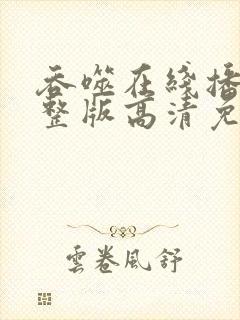 吞噬在綫播
整版高清免
雲卷風舒